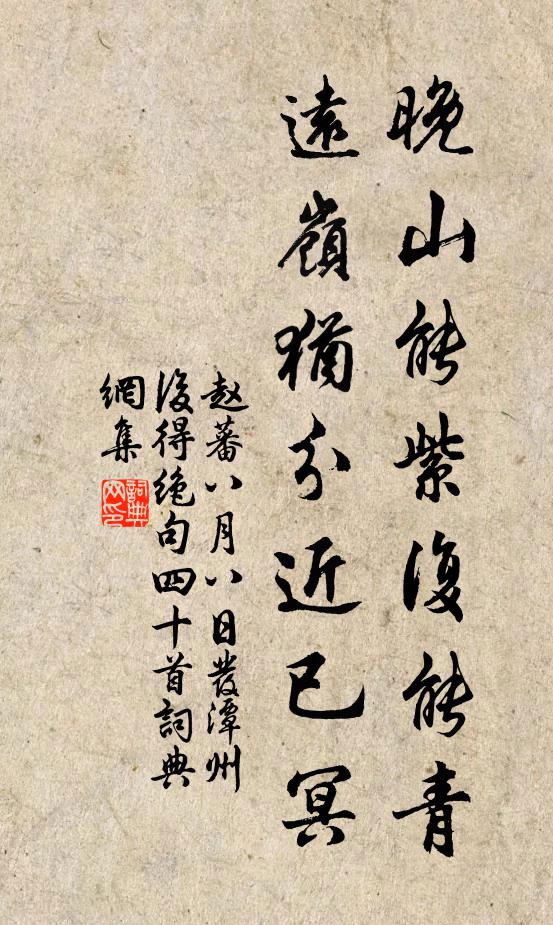 晚山能紫復能青
遠嶺猶分近已冥
赵蕃八月八日發潭州
後得絶句四十首詞典
網集
詞典网印